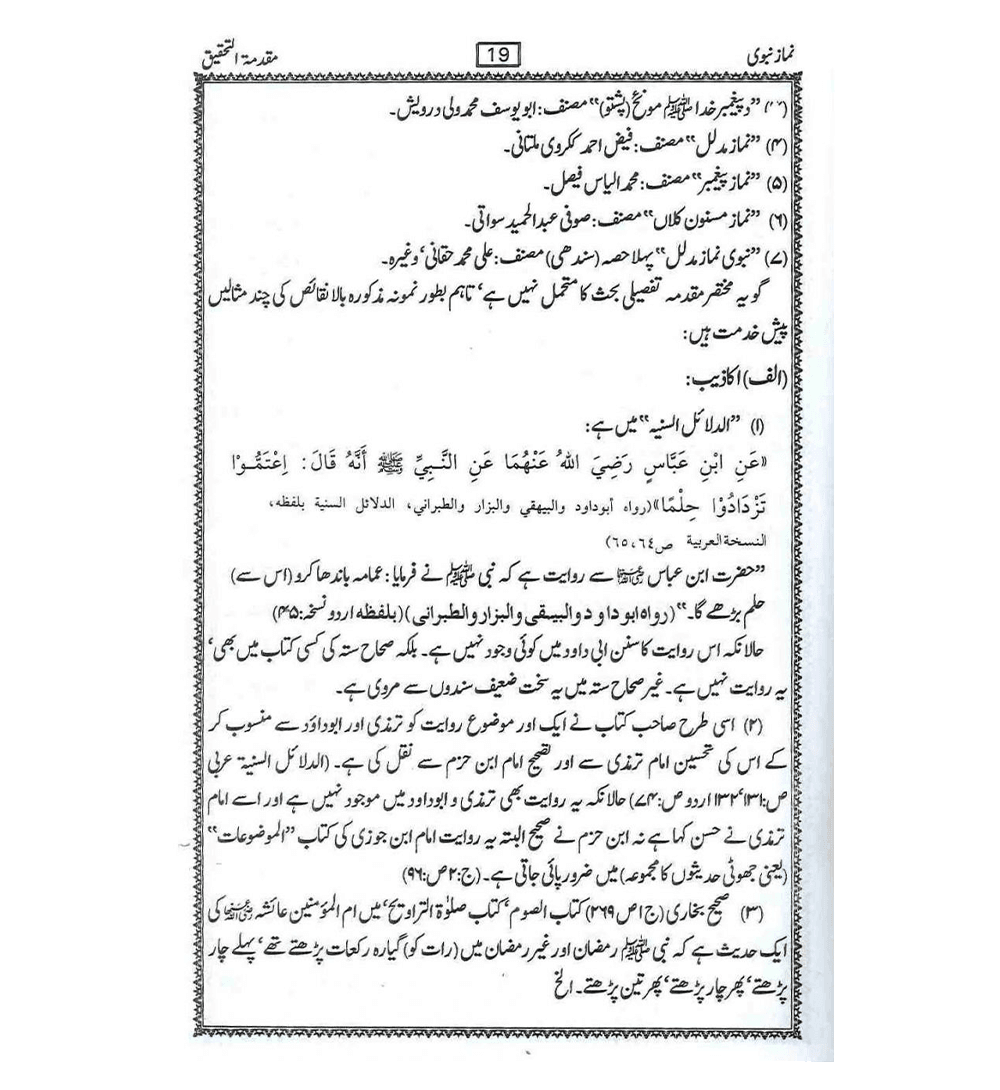 نماز نبوی 19 مقدمۃ التحقیق
"د پیغمبر خدا ﷺ مونځ (پشتو)" مصنف: ابو یوسف محمد ولی درویش۔
(۴) "نماز مدلل" مصنف: فیض احمد ککروی ملتانی۔
(۵) "نماز پیغمبر" مصنف: محمد الیاس فیصل۔
(۶) "نماز مسنون کلاں" مصنف: صوفی عبدالحمید سواتی۔
(۷) "نبوی نماز مدلل" پہلا حصہ (سندھی) مصنف: علی محمد حقانی' وغیرہ۔
گو یہ مختصر مقدمہ تفصیلی بحث کا متحمل نہیں ہے' تاہم بطور نمونہ مذکورہ بالا نقائص کی چند مثالیں
پیش خدمت ہیں:
(الف) اکاذیب:
(۱) "الدلائل السنیہ" میں ہے:
«عَنِ ابْنِ عَبَّاسٍ رَضِيَ اللهُ عَنْهُمَا عَنِ النَّبِيِّ ﷺ أَنَّهُ قَالَ: اِعْتَمُّوْا
تَزْدَادُوْا حِلْمًا»(رواه أبوداود والبيهقي والبزار والطبراني، الدلائل السنية بلفظه،
النسخة العربية ص٦٤،٦٥)
"حضرت ابن عباس رضی اللہ عنہما سے روایت ہے کہ نبی ﷺ نے فرمایا: عمامہ باندھا کرو (اس سے)
حلم بڑھے گا۔" (رواہ ابوداود والبیہقی والبزار والطبرانی) (بلفظہ اردو نسخہ:۴۵)
حالانکہ اس روایت کا سنن ابی داود میں کوئی وجود نہیں ہے۔ بلکہ صحاح ستہ کی کسی کتاب میں بھی'
یہ روایت نہیں ہے۔ غیر صحاح ستہ میں یہ سخت ضعیف سندوں سے مروی ہے۔
(۲) اسی طرح صاحب کتاب نے ایک اور موضوع روایت کو ترمذی اور ابوداؤد سے منسوب کر
کے اس کی تحسین امام ترمذی سے اور تصحیح امام ابن حزم سے نقل کی ہے۔ (الدلائل السنیۃ عربی
ص:۱۳۱'۱۳۲ اردو ص:۷۴) حالانکہ یہ روایت بھی ترمذی و ابوداود میں موجود نہیں ہے اور اسے امام
ترمذی نے حسن کہا ہے نہ ابن حزم نے صحیح البتہ یہ روایت امام ابن جوزی کی کتاب "الموضوعات"
(یعنی جھوٹی حدیثوں کا مجموعہ) میں ضرور پائی جاتی ہے۔ (ج:۲ ص:۹۶)
(۳) صحیح بخاری (ج ۱ ص ۲۶۹) کتاب الصوم' کتاب صلوٰۃ التراویح' میں ام المؤمنین عائشہ رضی اللہ عنہا کی
ایک حدیث ہے کہ نبی ﷺ رمضان اور غیر رمضان میں (رات کو) گیارہ رکعات پڑھتے تھے' پہلے چار
پڑھتے' پھر چار پڑھتے' پھر تین پڑھتے۔ الخ